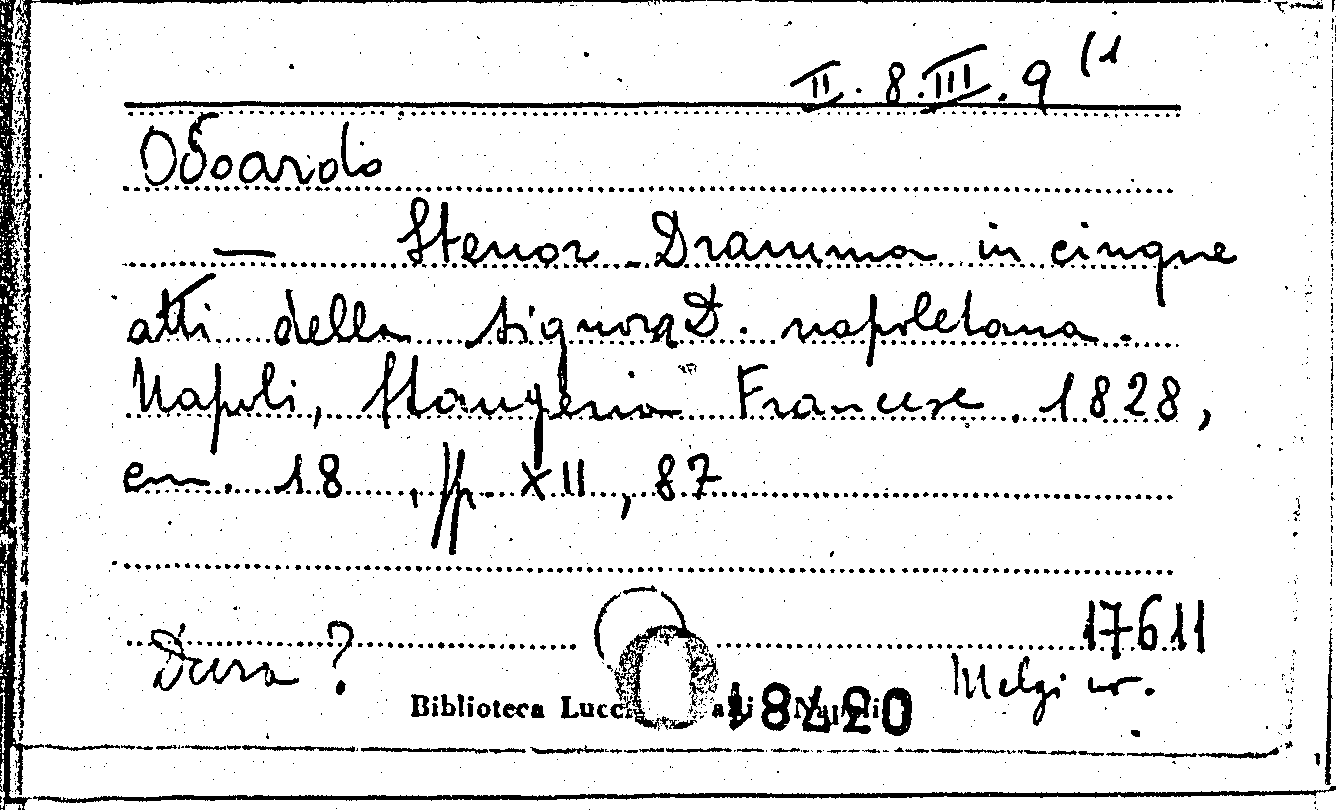 II.8.III.9 (1
Odoardo
— Stenor. Dramma in cinque
atti della signora D. napoletana.
Napoli, Stamperia Francese. 1828,
cm. 18, pp. XII, 87
17611
Dura?
Biblioteca